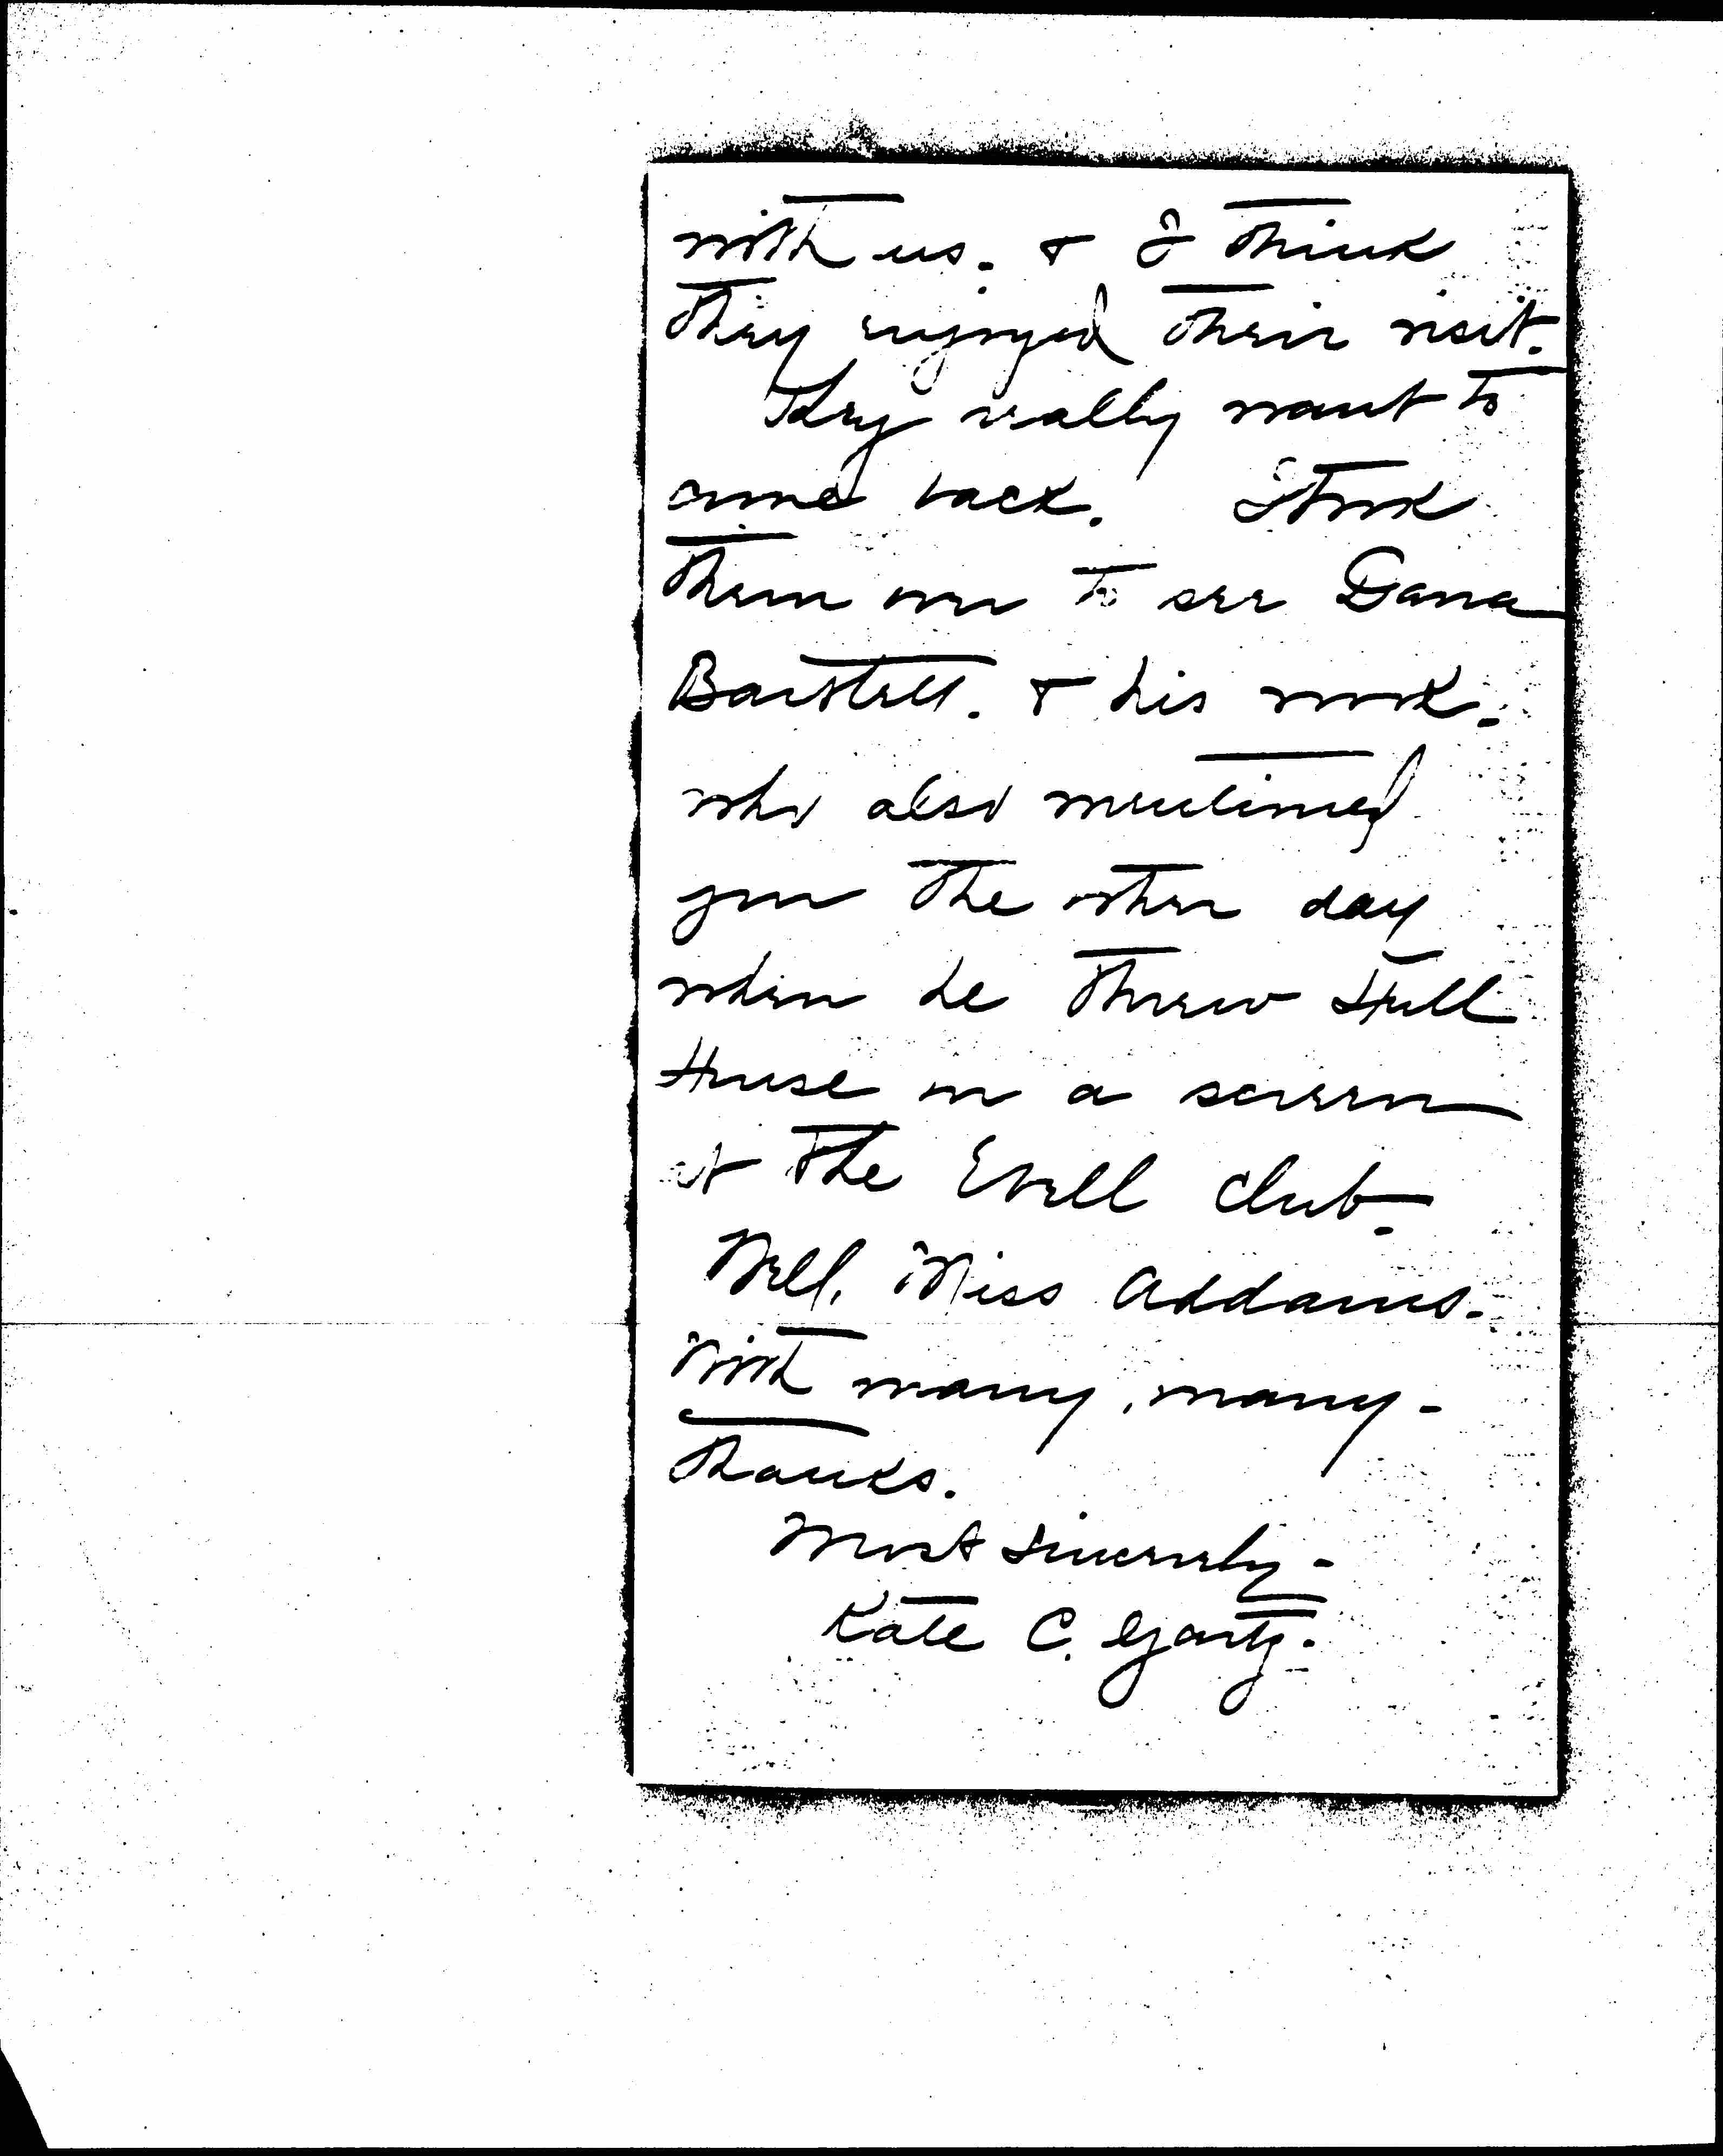 with us. & I think
they enjoyed their visit.
They really want to
come back. I took
them over to see Dana
Bartlett. & his work.
who also mentioned
you the other day
when he threw Hull
House on a screen
at the Ebell Club.
Well, Miss Addams.
With many, many -
thanks.
Most sincerely -
Kate C. Gartz.